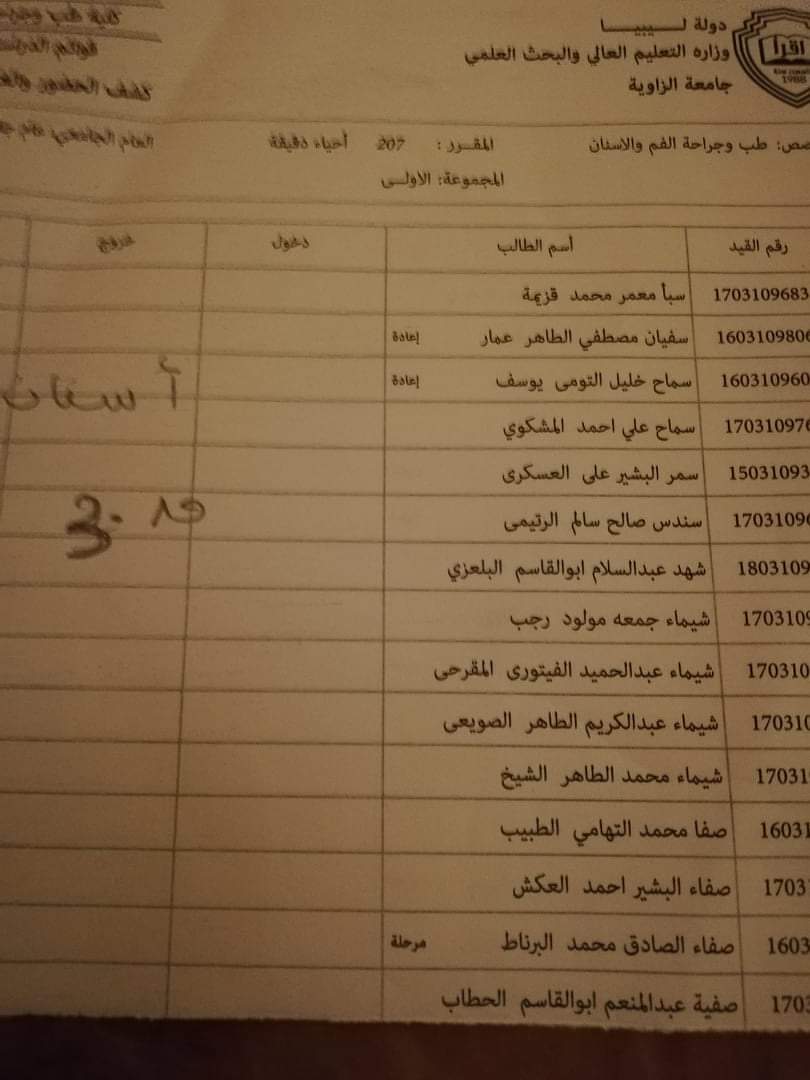 دولة لـــيـــبـــيـــا
وزاره التعليم العالي والبحث العلمي
جامعة الزاوية
اقرأ
1988
كلية طب
قوائم
كشف الحضور
صص: طب وجراحة الفم والاسنان المقـــرر : 207 أحياء دقيقة العام الجامعي
المجموعة: الاولـــى
رقم القيد أسم الطالب دخول خروج
1703109683 سبأ معمر محمد قزيمة
160310980 سفيان مصطفي الطاهر عمار إعادة
160310960 سماح خليل التومى يوسف إعادة
170310976 سماح علي احمد المشكوي
15031093 سمر البشير على العسكرى
17031096 سندس صالح سالم الرتيمى
1803109 شهد عبدالسلام ابوالقاسم البلعزي
1703109 شيماء جمعه مولود رجب
170310 شيماء عبدالحميد الفيتورى المقرحى
170310 شيماء عبدالكريم الطاهر الصويعى
17031 شيماء محمد الطاهر الشيخ
16031 صفا محمد التهامي الطبيب
1703 صفاء البشير احمد العكش
1603 صفاء الصادق محمد البرناط مرحلة
1703 صفية عبدالمنعم ابوالقاسم الحطاب
أسنان